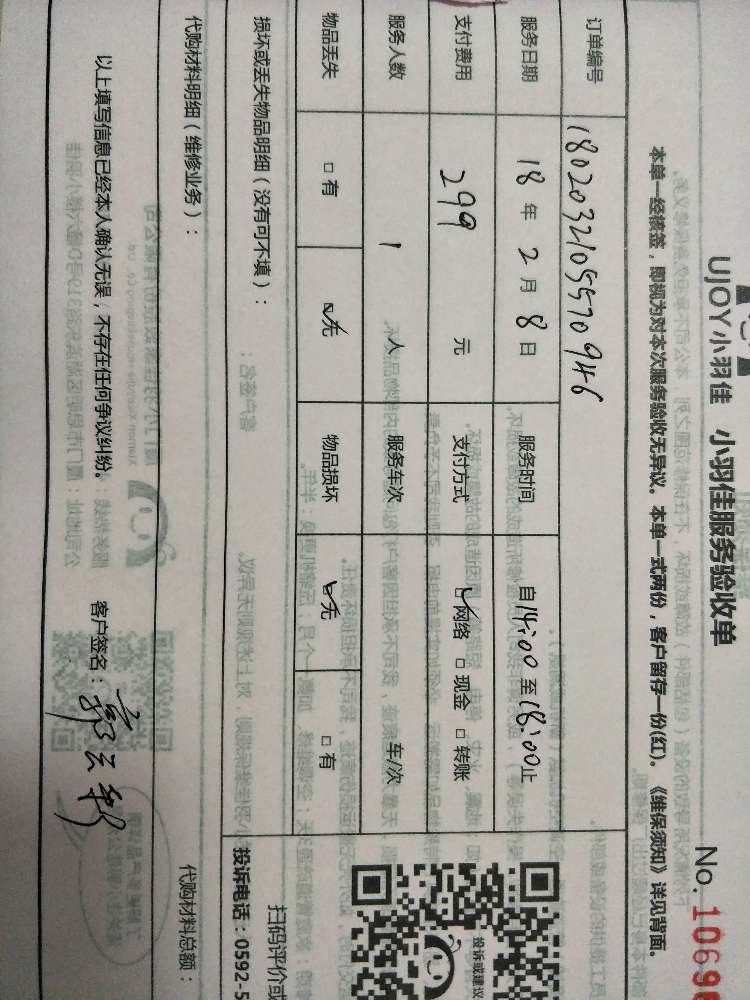 UJOY小羽佳 小羽佳服务验收单
No. 1069
本单一经核签，即视为对本次服务验收无异议。本单一式两份，客户留存一份(红)。《维保须知》详见背面。
订单编号 1802032105570946
服务日期 18 年 2 月 8 日 服务时间 自14:00 至18:00止
支付费用 299 元 支付方式 ☑网络 □现金 □转账
服务人数 1 人 服务车次 车/次
物品丢失 □有 ☑无 物品损坏 ☑无 □有
损坏或丢失物品明细（没有可不填）：
代购材料明细（维修业务）： 代购材料总额：
以上填写信息已经本人确认无误，不存在任何争议纠纷。 客户签名：
投诉或建议
扫码评价或
投诉电话：0592-5